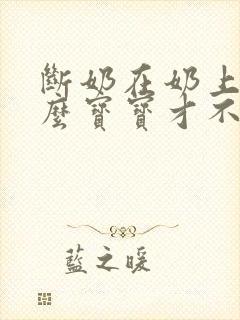 斷奶在奶上
麼寶寶才不
藍之暖